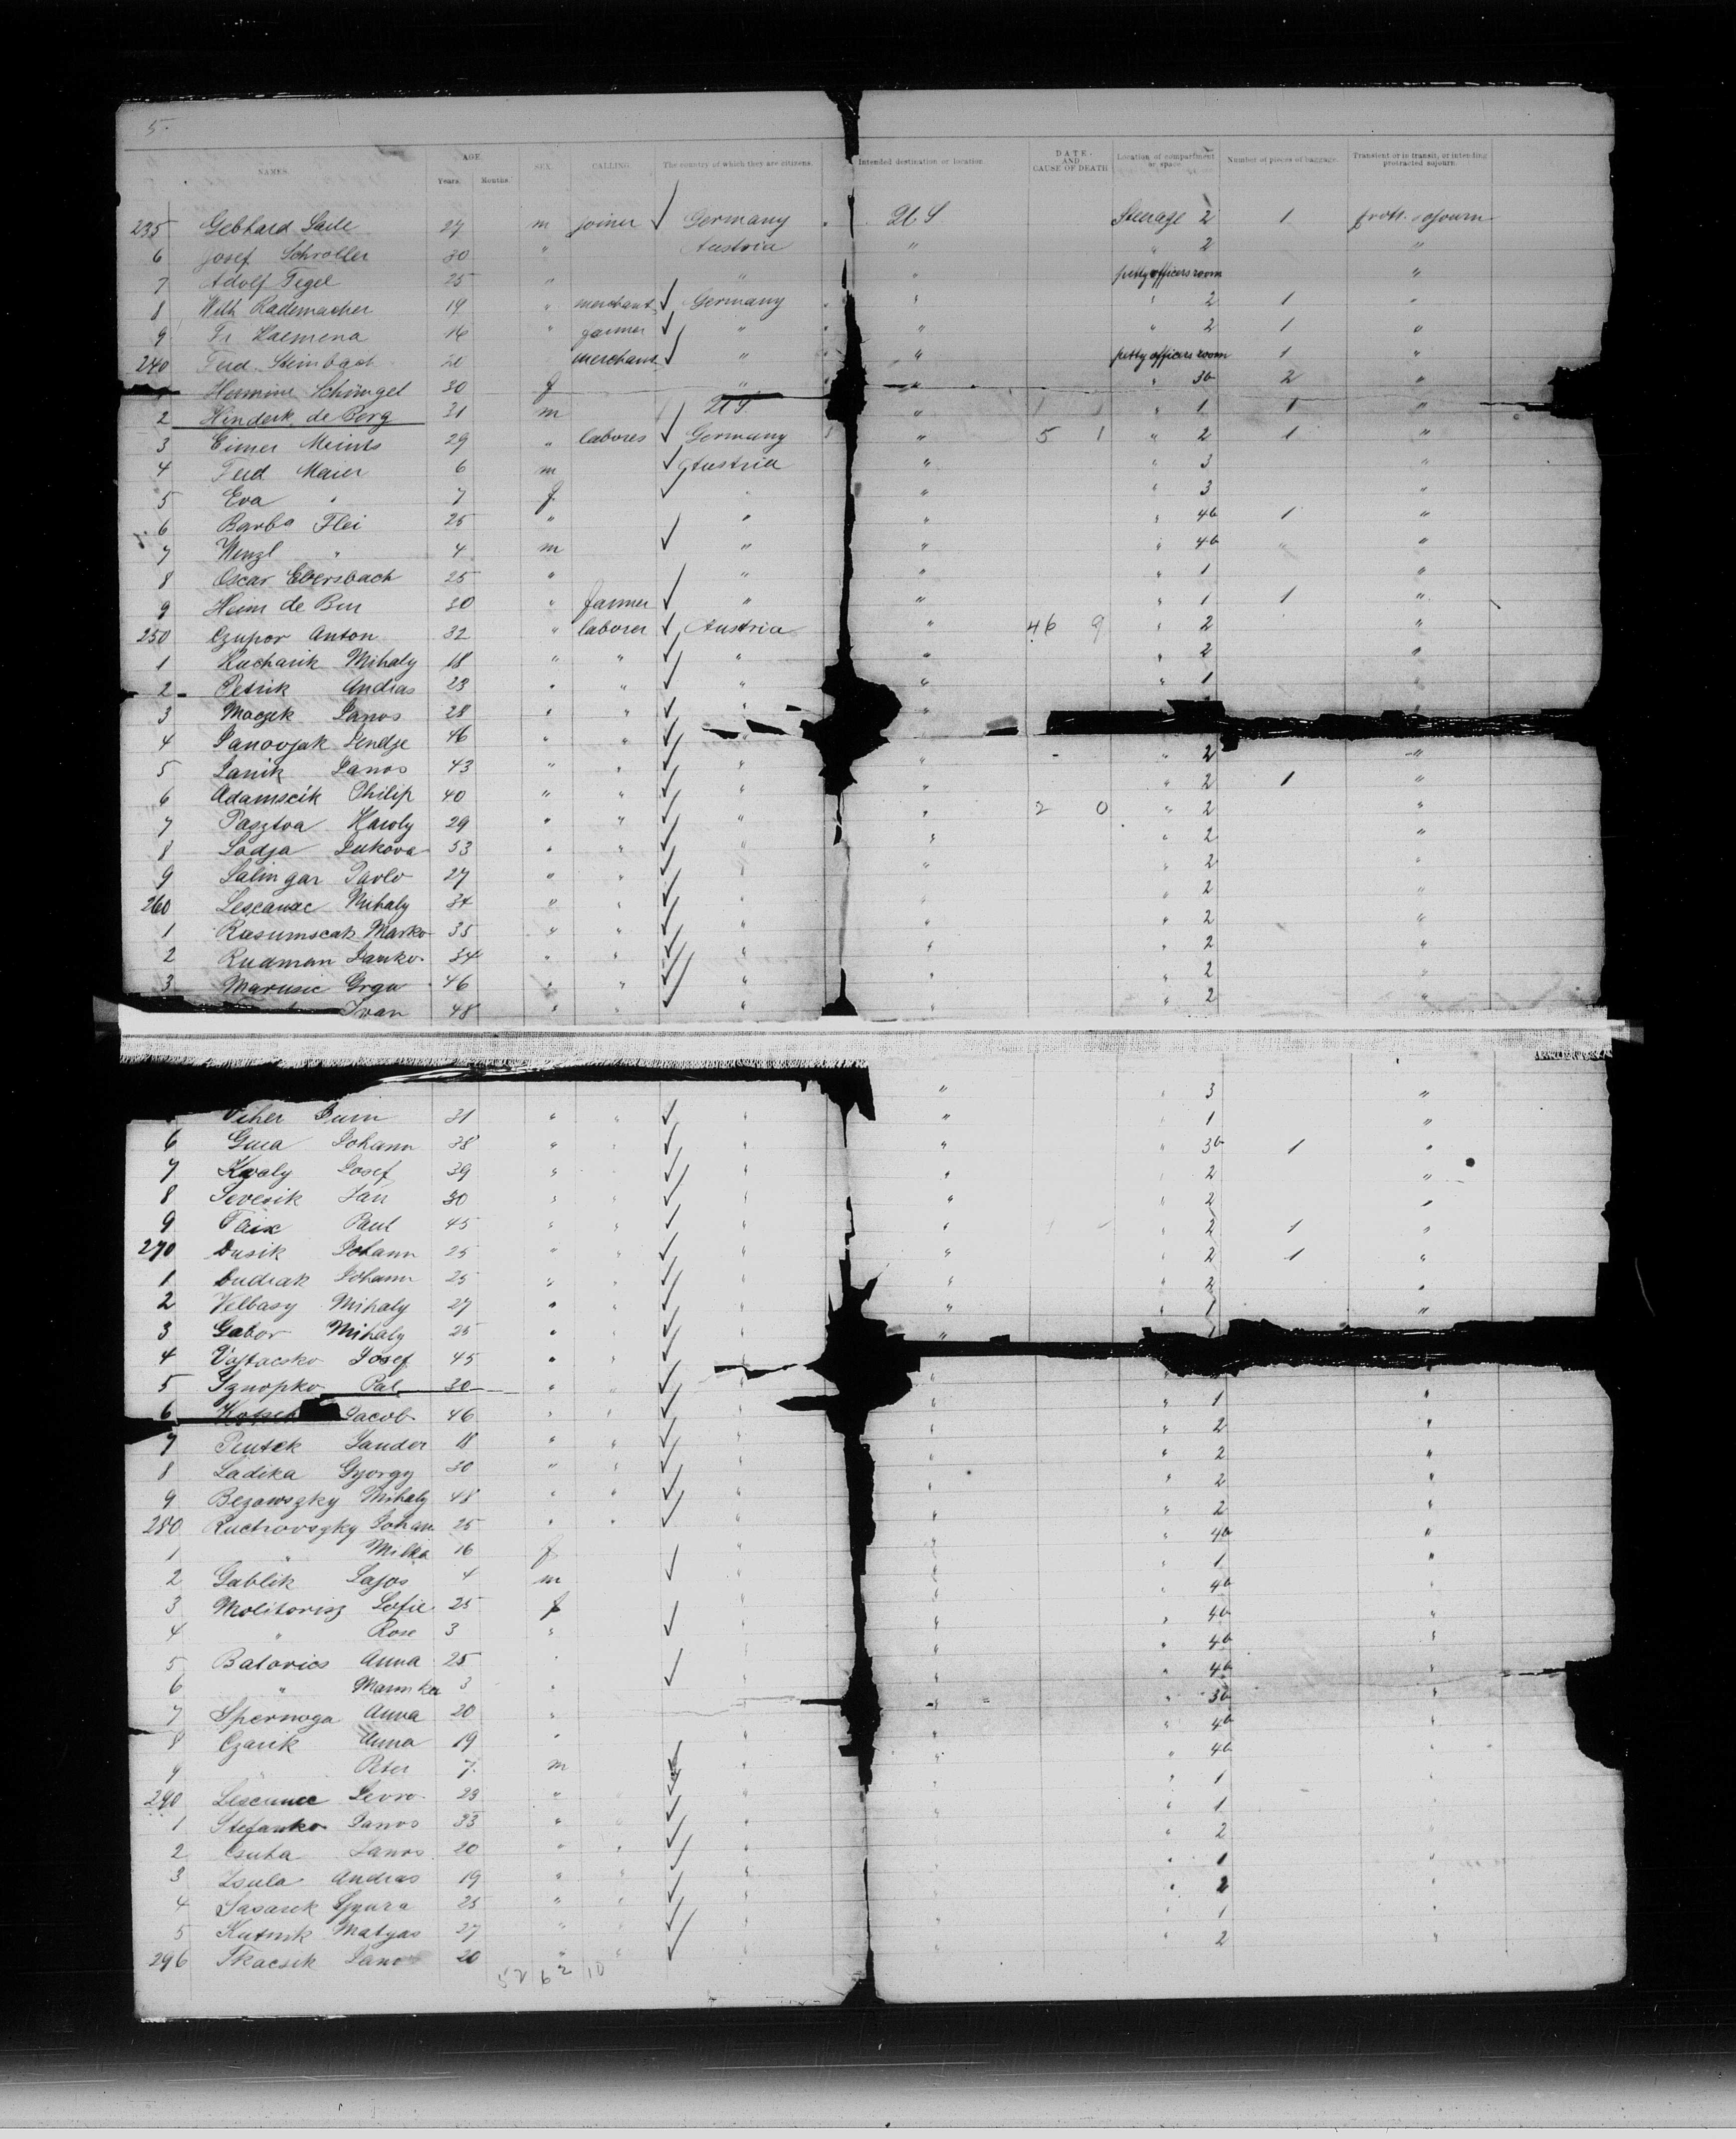 5.
NAMES. AGE. Years. Months. SEX. CALLING. The country of which they are citizens. Intended destination or location. DATE AND CAUSE OF DEATH Location of compartment or space. Number of pieces of baggage. Transient or in transit, or intending protracted sojourn.
235 Gebhard Saile 27 m joiner ✓ Germany " U S Steerage 2 1 protr. sojourn
6 Josef Schroller 30 " Austria " " 2 "
7 Adolf Tegel 25 " " " petty officers room "
8 Wilh Rademacher 19 " merchant ✓ Germany " " 2 1 "
9 Fr Haemena 16 " farmer ✓ " " " 2 1 "
240 Ferd. Steinbach 20 merchant ✓ " " petty officers room 1 "
Hermine Schüngel 30 f " " " 3b 2 "
2 Hinderk de Berg 31 m U S " " 1 1 "
3 Eimer Meints 29 " labores ✓ Germany " 5 1 " 2 1 "
4 Ferd Maier 6 m ✓ Austria " " 3 "
5 Eva " 7 f ✓ " " " 3 "
6 Barba Flei 25 " " " " 4b 1 "
7 Wenzl " 4 m ✓ " " " 4b " "
8 Oscar Ebersbach 25 " " " " 1 "
9 Heim de Bur 30 " farmer ✓ " " " 1 1 "
250 Czupor Anton 32 " laborer ✓ Austria " 46 9 " 2 "
1 Kucharik Mihaly 18 " " ✓ " " " 2 "
2 Petrik Andras 23 " " ✓ " " " 1 "
3 Maczek Janos 28 " " ✓ " "
4 Janovjak Jendze 46 " " ✓ " 2 "
5 Janik Janos 43 " " ✓ " " " 2 1 "
6 Adamscik Philip 40 " " ✓ " " 2 0 " 2 "
7 Pasztva Karoly 29 " " ✓ " " " 2 "
8 Sadja Lukova 53 " " ✓ " " " 2 "
9 Salingar Pavlo 27 " " ✓ " " " 2 "
260 Lescanac Mihaly 34 " " ✓ " " " 2 "
1 Rasumscak Marko 35 " " ✓ " " " 2 "
2 Rudman Janko 34 " " ✓ " " " 2 "
3 Marusic Grga 46 " " ✓ " " " 2 "
Ivan 48 " " ✓ " " 3 "
Viher Djurn 31 " " ✓ " " " 1 "
6 Guca Johann 38 " " ✓ " " " 3b 1 "
7 Kovaly Josef 39 " " ✓ " " " 2 "
8 Sevesik Jan 30 " " ✓ " " " 2 "
9 Flaix Paul 45 " " ✓ " " " 2 1 "
270 Dusik Johann 25 " " ✓ " " " 2 1 "
1 Dudiak Johann 25 " " ✓ " " " 2 "
2 Velbasy Mihaly 27 " " ✓ " " " 1 "
3 Gabor Mihaly 25 " " ✓ " "
4 Vajtacsko Josef 45 " " ✓ "
5 Sznopko Pal 30 " " ✓ " " "
6 Jacob 46 " " ✓ " " " 1 "
7 Pentek Sandor 18 " " ✓ " " " 2 "
8 Ladika Gyorgy 30 " " ✓ " " " 2 "
9 Bezowszky Mihaly 48 " " ✓ " " " 2 "
280 Ruchovszky Johan 25 " " ✓ " " " 2 "
1 " Milka 16 f " " " 4b "
2 Gablik Lajos 4 m ✓ " " " 1 "
3 Molitorisz Sofie 25 f " " 4b "
4 " Rose 3 " ✓ " " 4b "
5 Batovics Anna 25 " " " 4b "
6 " Marinka 3 " ✓ " " 4b "
7 Spernoga Anna 20 " " " 3b "
8 Czarik Anna 19 " " " 4b "
9 " Peter 7 m ✓ " " " 4b "
290 Lescanec Jovo 23 " " ✓ " " 1 "
1 Stefanko Janos 33 " " ✓ " " " 1 "
2 Csuha Janos 20 " " ✓ " " 2 "
3 Zsula Andras 19 " " ✓ " " 1 "
4 Sasarek Gyura 25 " " ✓ " " 2 "
5 Kutnik Matyas 27 " " ✓ " " " 1 "
296 Tkacsik Janos 20 " " ✓ " " 2 "
52 6 2 10